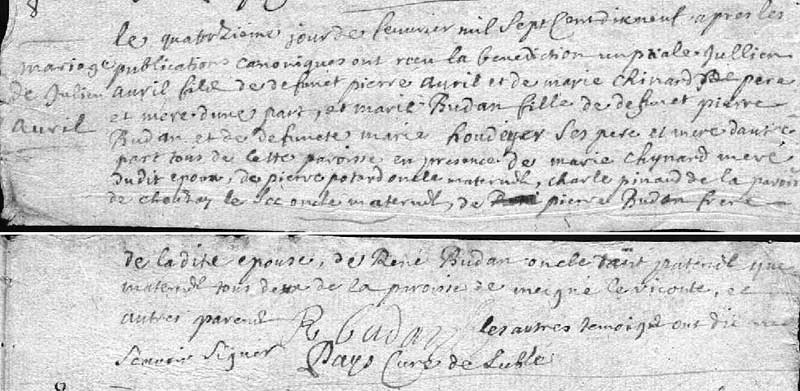 8
le quatrzieme jour de feuvrier mil sept cent dixneuf apres les
mariage publications canoniques ont receu la benediction nuptiale Jullien
de Julien avril fils de defunct pierre avril et de marie chinard pere
avril et mere dune part, et marie Budan fille de defunct pierre
Budan et de defuncte marie houdeyer ses pere et mere dautre
part tous de cette paroisse en presence de marie chynard mere
dudit epoux, de pierre potard oncle maternel, charle pinard de la paroisse
de le oncle maternel, de pierre Budan frere
de ladite epouse, de René Budan oncle tant paternel que
maternel tous deux de la paroisse de le viconte, et
autres parens R Budan les autres temoigns ont dit ne
scauoir signer Pays Curé de Lublé